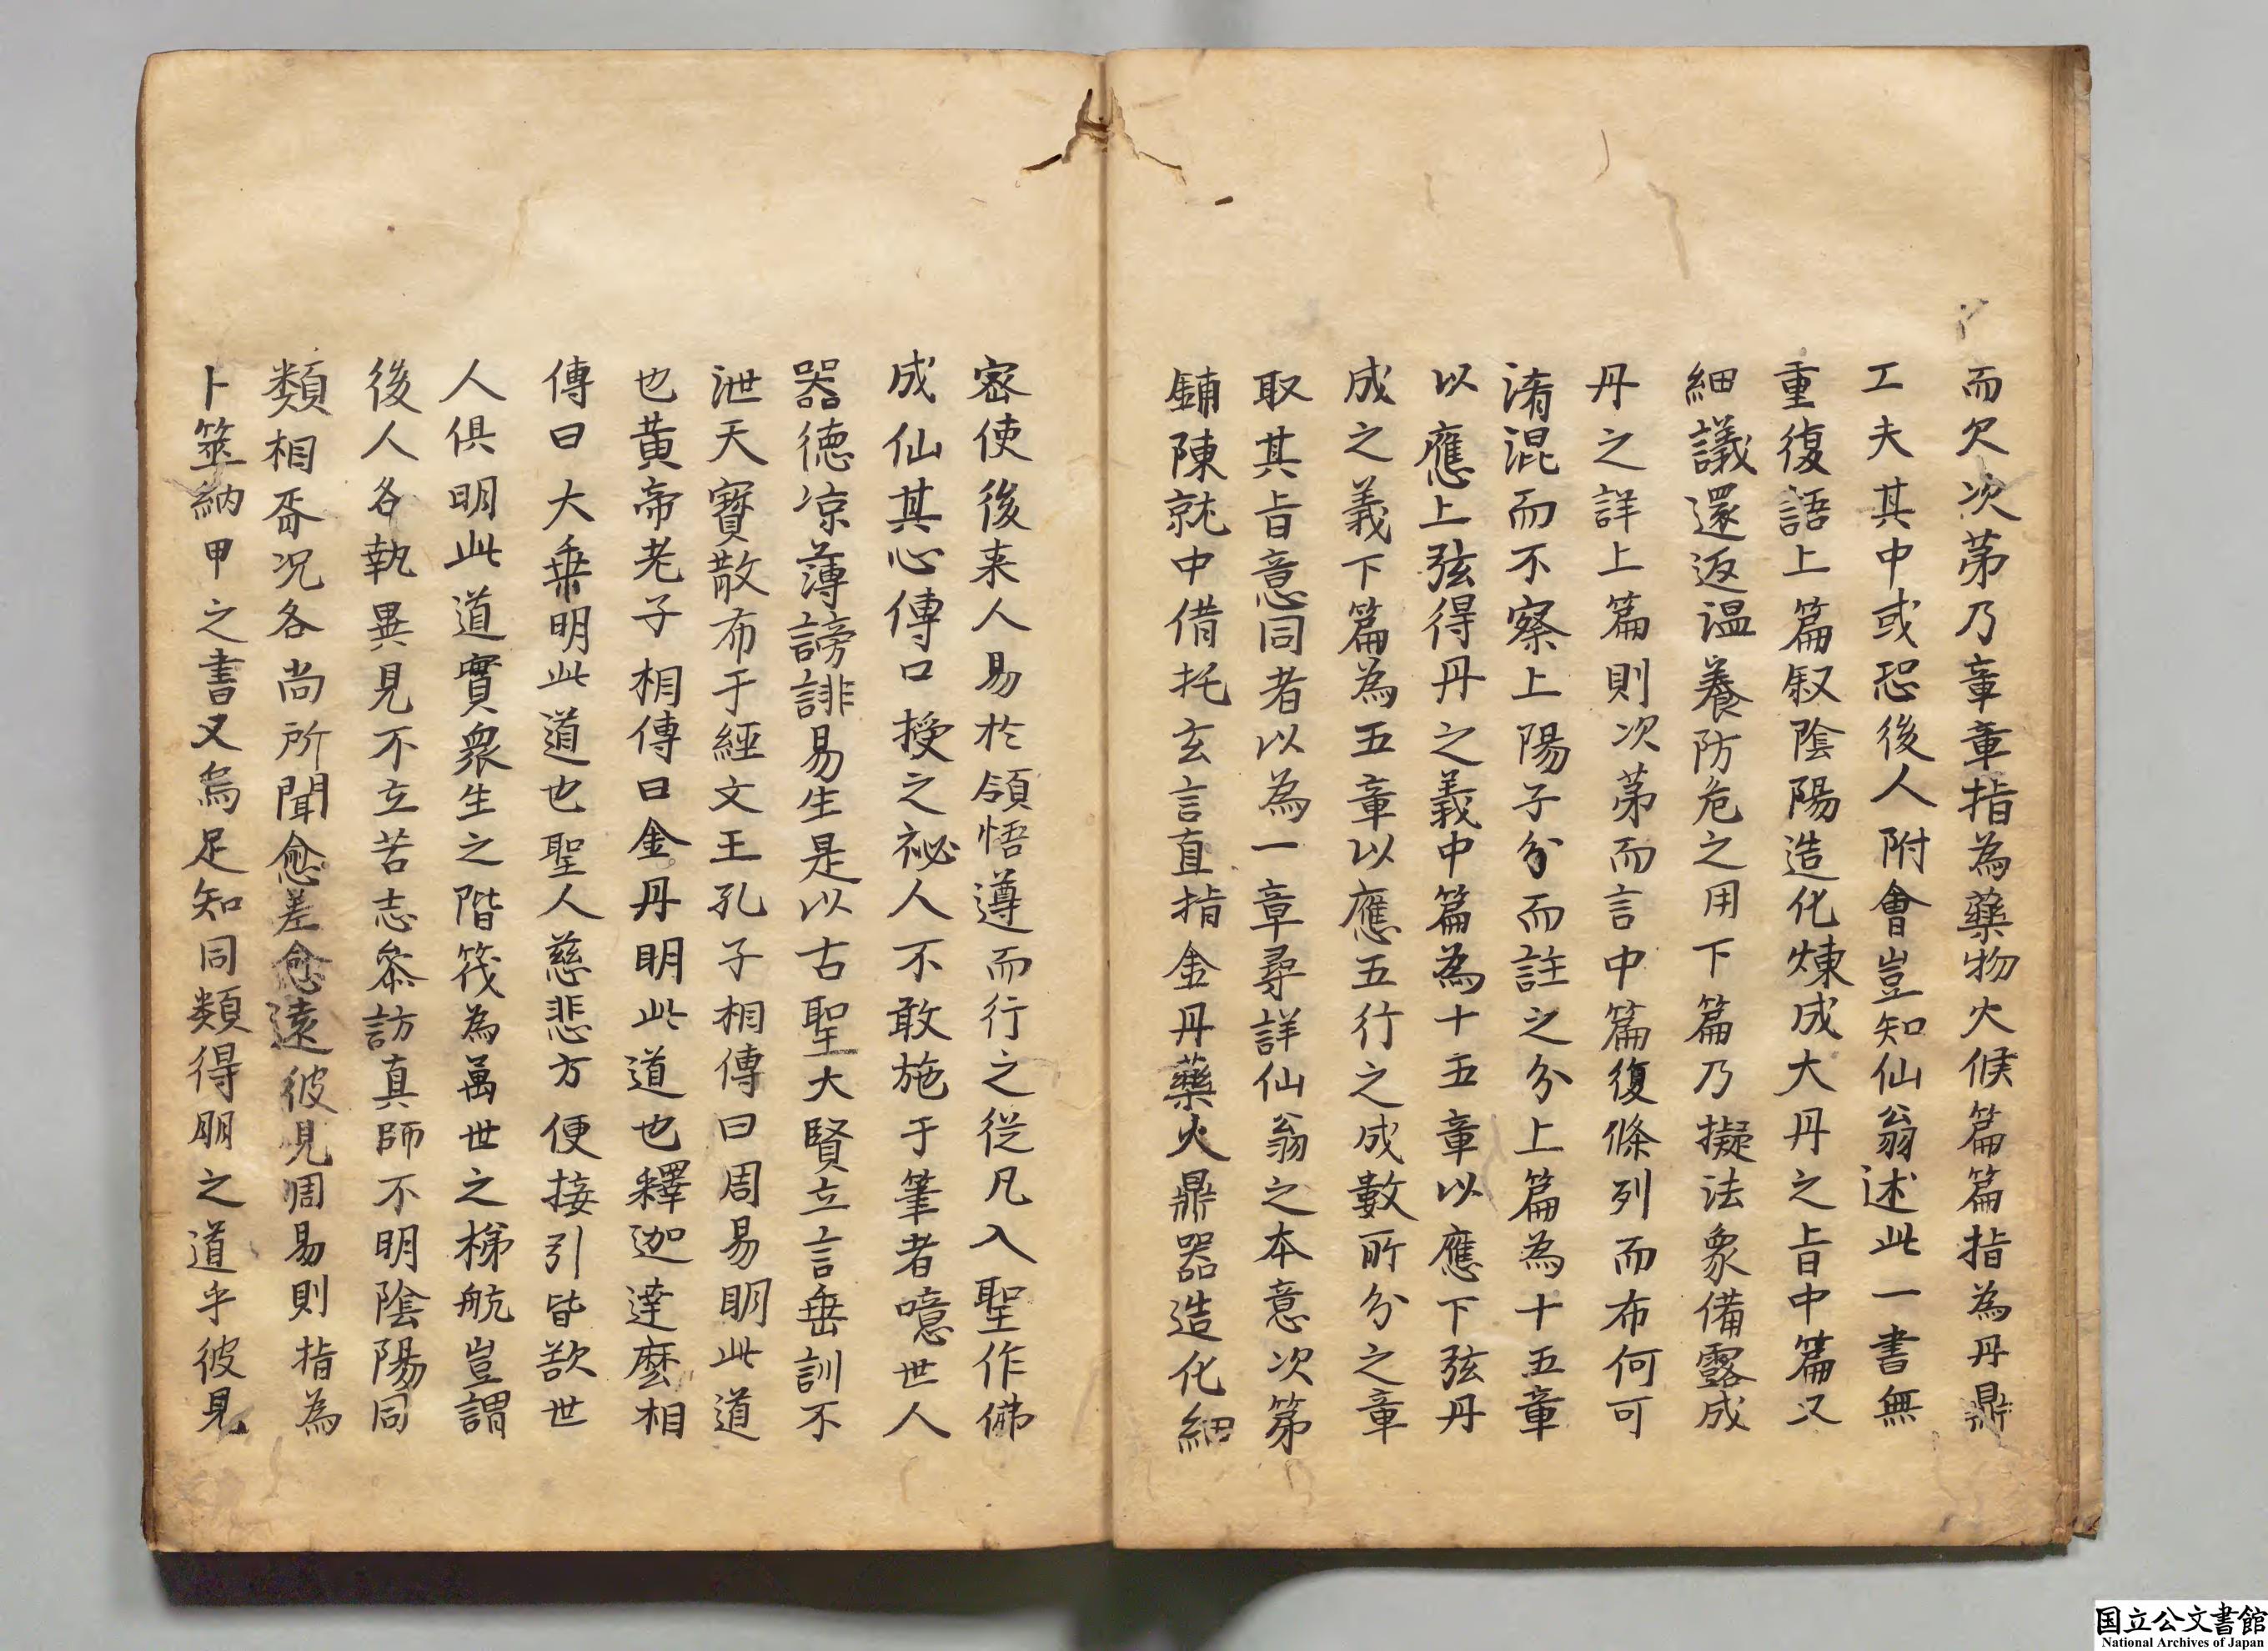 而欠次苐乃章章指為藥物火候篇篇指為丹鼎
工夫其中或恐後人附會豈知仙翁述此一書無
重復語上篇叙陰陽造化煉成大丹之旨中篇又
細議還返温養防危之用下篇乃擬法象備露成
丹之詳上篇則次苐而言中篇復條列而布何可
淆混而不察上陽子分而註之分上篇為十五章
以應上弦得丹之義中篇為十五章以應下弦丹
成之義下篇為五章以應五行之成數所分之章
取其旨意同者以為一章尋詳仙翁之本意次苐
鋪陳就中借托玄言直指金丹藥火鼎器造化細
密使後来人易於領悟遵而行之従凡入聖作佛
成仙其心傳口授之祕人不敢施于筆者噫世人
器德凉薄謗誹易生是以古聖大賢立言垂訓不
泄天寳散布于經文王孔子相傳曰周易明此道
也黄帝老子相傳曰金丹明此道也釋迦達麼相
傳曰大乗明此道也聖人慈悲方便接引皆欲世
人俱明此道實衆生之階筏為萬世之梯航豈謂
後人各執異見不立苦志叅訪真師不明陰陽同
類相胥况各尚所聞愈差愈遠彼見周易則指為
卜筮納甲之書又烏足知同類得朋之道乎彼見
国立公文書館
National Archives of Japan